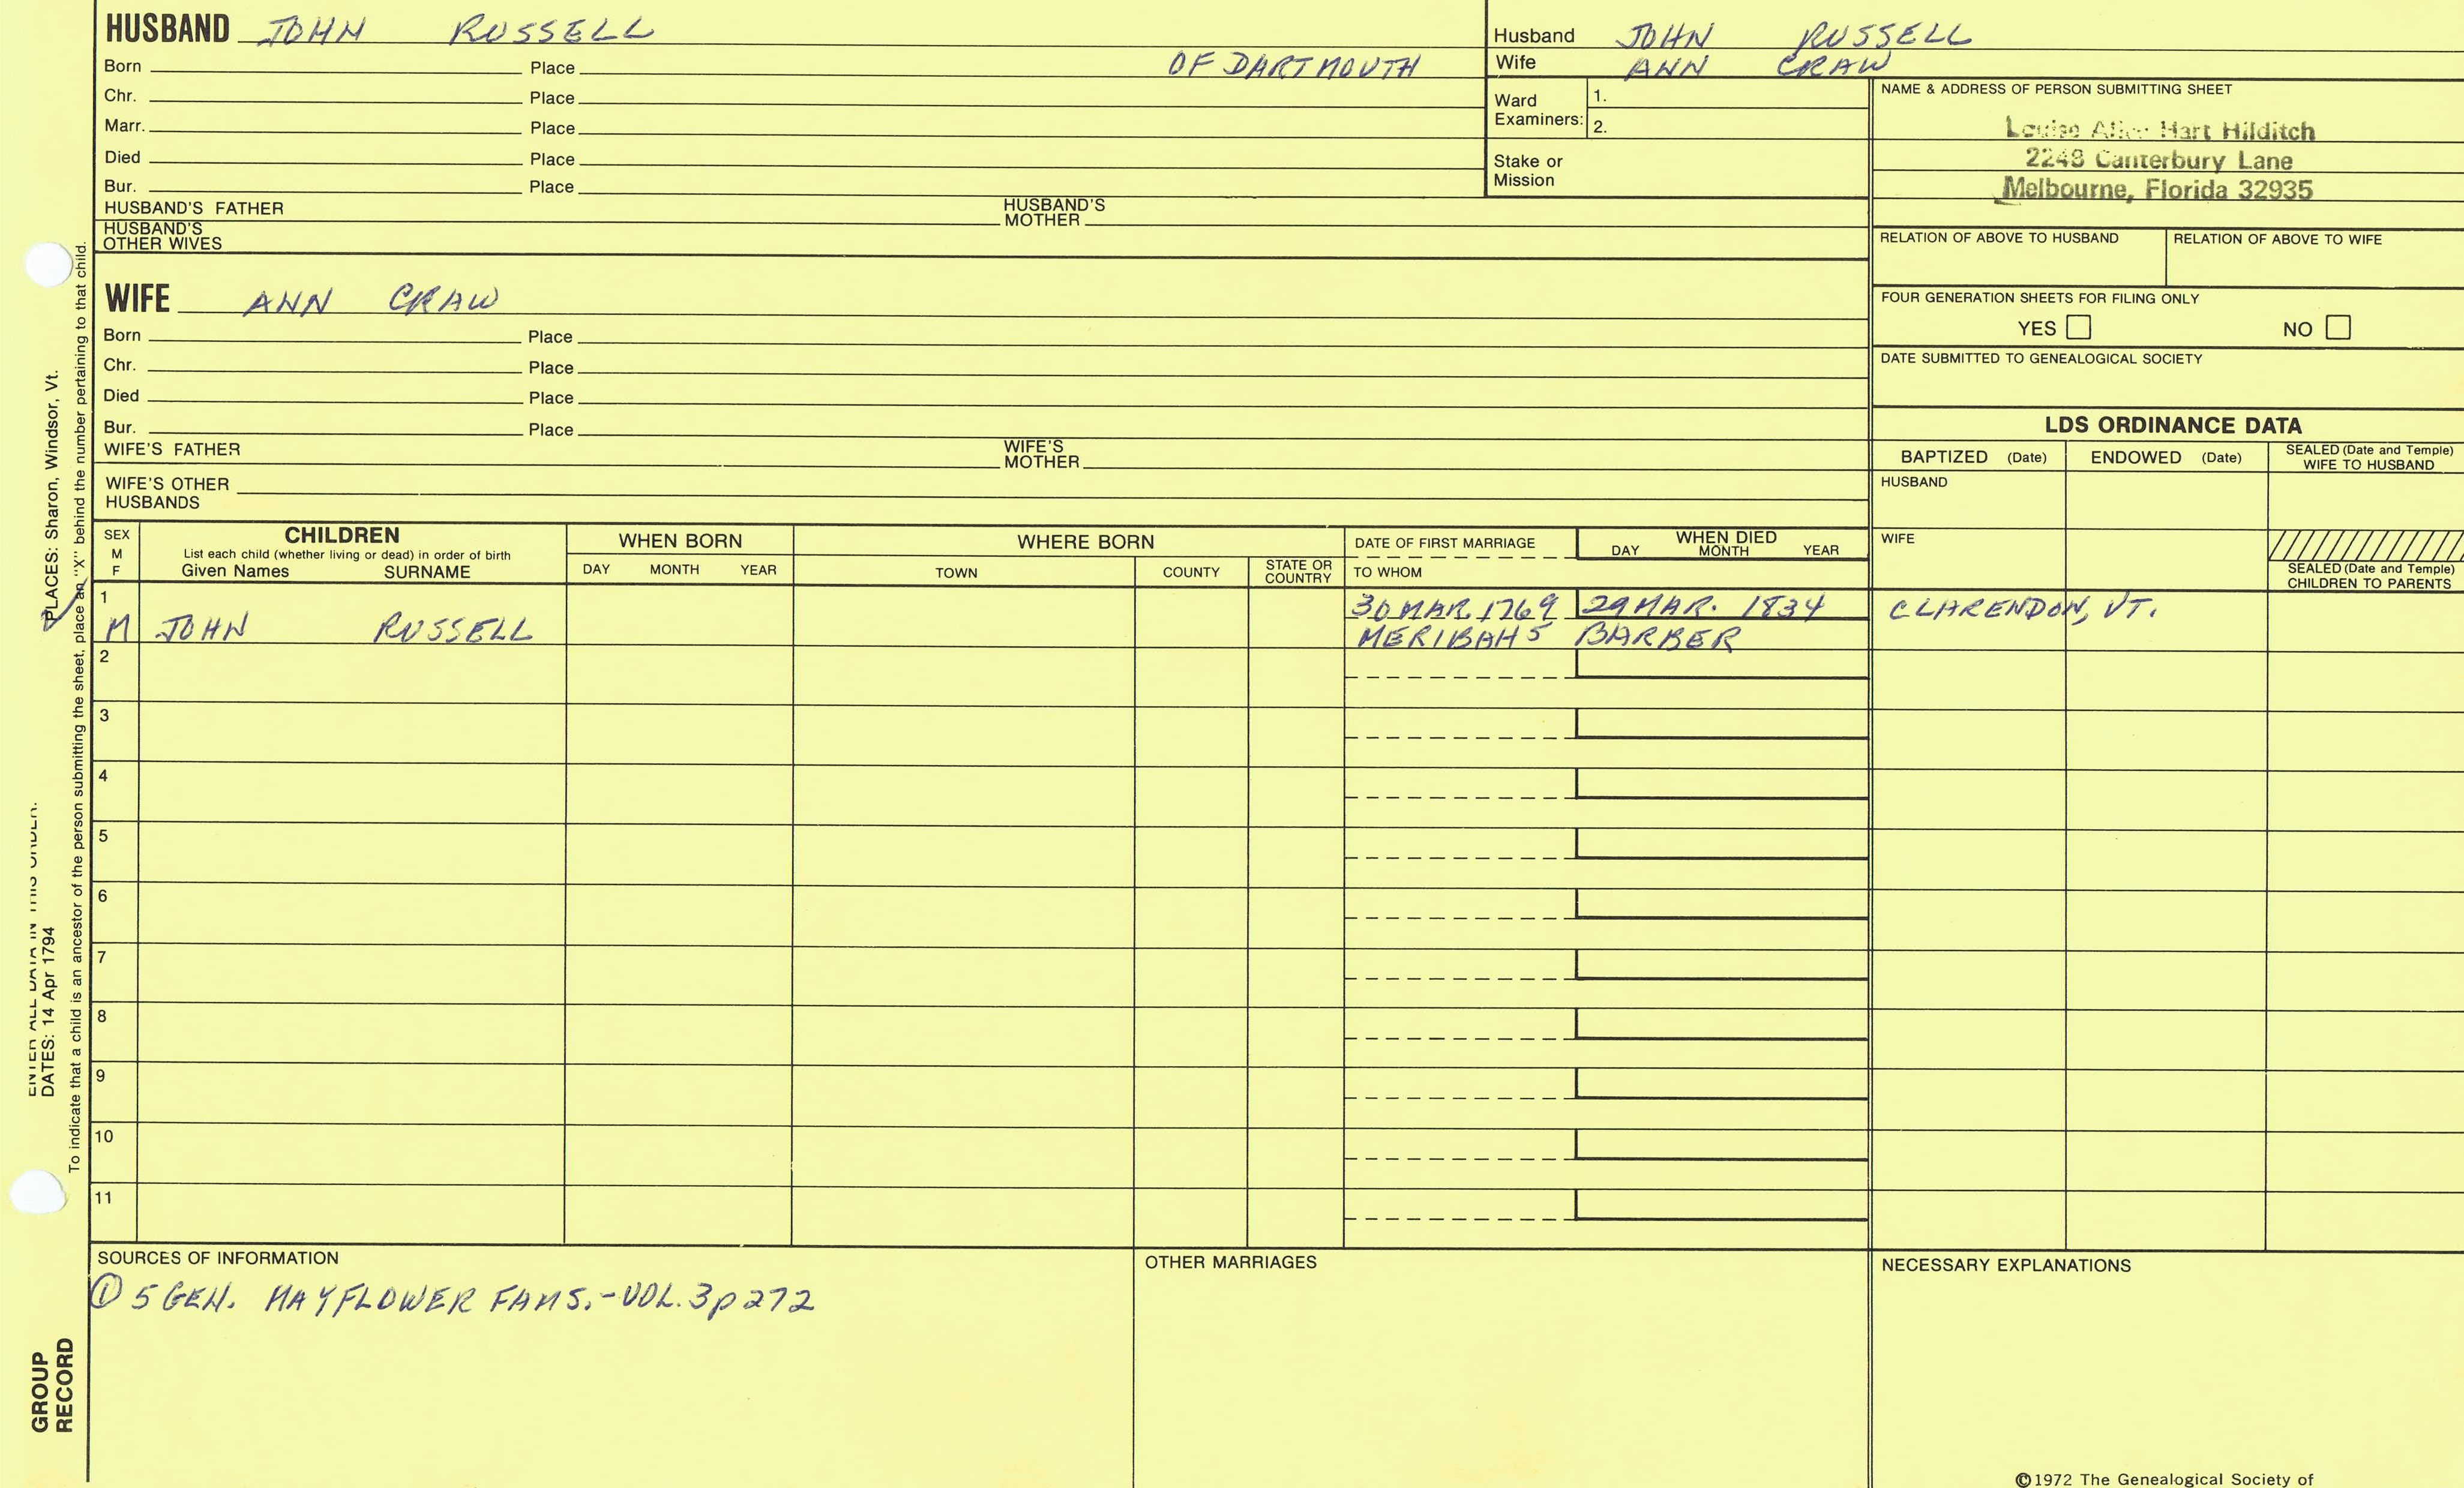 HUSBAND JOHN RUSSELL
Born Place OF DARTMOUTH
Chr. Place
Marr. Place
Died Place
Bur. Place
HUSBAND'S FATHER HUSBAND'S MOTHER
HUSBAND'S OTHER WIVES
Husband JOHN RUSSELL
Wife ANN CRAW
Ward Examiners: 1.
2.
Stake or Mission
NAME & ADDRESS OF PERSON SUBMITTING SHEET
Louise Hart Hilditch
2248 Canterbury Lane
Melbourne, Florida 32935
RELATION OF ABOVE TO HUSBAND RELATION OF ABOVE TO WIFE
FOUR GENERATION SHEETS FOR FILING ONLY
YES NO
DATE SUBMITTED TO GENEALOGICAL SOCIETY
WIFE ANN CRAW
Born Place
Chr. Place
Died Place
Bur. Place
WIFE'S FATHER WIFE'S MOTHER
WIFE'S OTHER HUSBANDS
LDS ORDINANCE DATA
BAPTIZED (Date) ENDOWED (Date) SEALED (Date and Temple) WIFE TO HUSBAND
HUSBAND
WIFE
SEALED (Date and Temple) CHILDREN TO PARENTS
SEX M F
CHILDREN
List each child (whether living or dead) in order of birth
Given Names SURNAME
WHEN BORN
DAY MONTH YEAR
WHERE BORN
TOWN COUNTY STATE OR COUNTRY
DATE OF FIRST MARRIAGE
TO WHOM
WHEN DIED
DAY MONTH YEAR
1 30 MAR. 1769 29 MAR. 1834 CLARENDON, VT.
M JOHN RUSSELL MERIBAH 5 BARBER
2
3
4
5
6
7
8
9
10
11
SOURCES OF INFORMATION
① 5 GEN. MAYFLOWER FAMS.-VOL. 3 p 272
OTHER MARRIAGES
NECESSARY EXPLANATIONS
©1972 The Genealogical Society of
ENTER ALL DATA IN THIS ORDER:
DATES: 14 Apr 1794
PLACES: Sharon, Windsor, Vt.
To indicate that a child is an ancestor of the person submitting the sheet, place an "X" behind the number pertaining to that child.
GROUP
RECORD